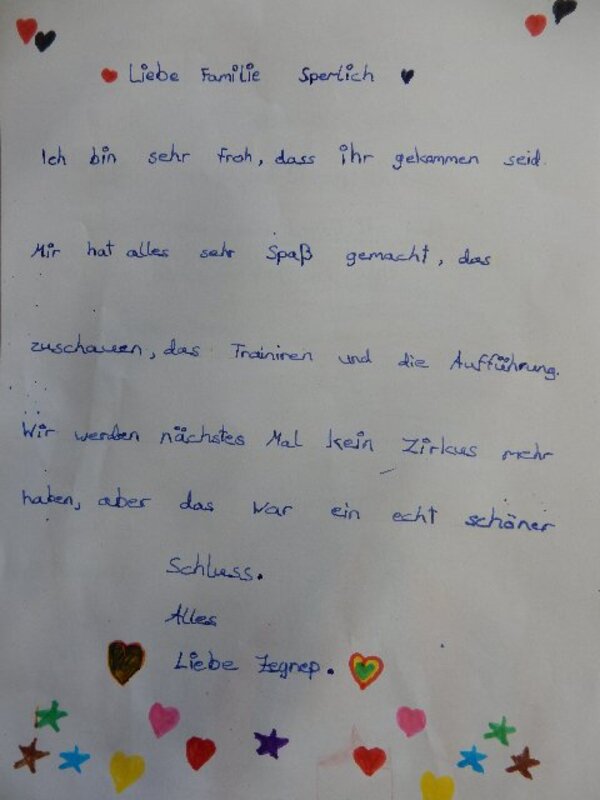 Liebe Familie Sperlich
Ich bin sehr froh, dass ihr gekommen seid.
Mir hat alles sehr Spaß gemacht, das
zuschauen, das Trainiren und die Aufführung.
Wir werden nächstes Mal kein Zirkus mehr
haben, aber das war ein echt schöner
Schluss.
Alles
Liebe Zegnep.